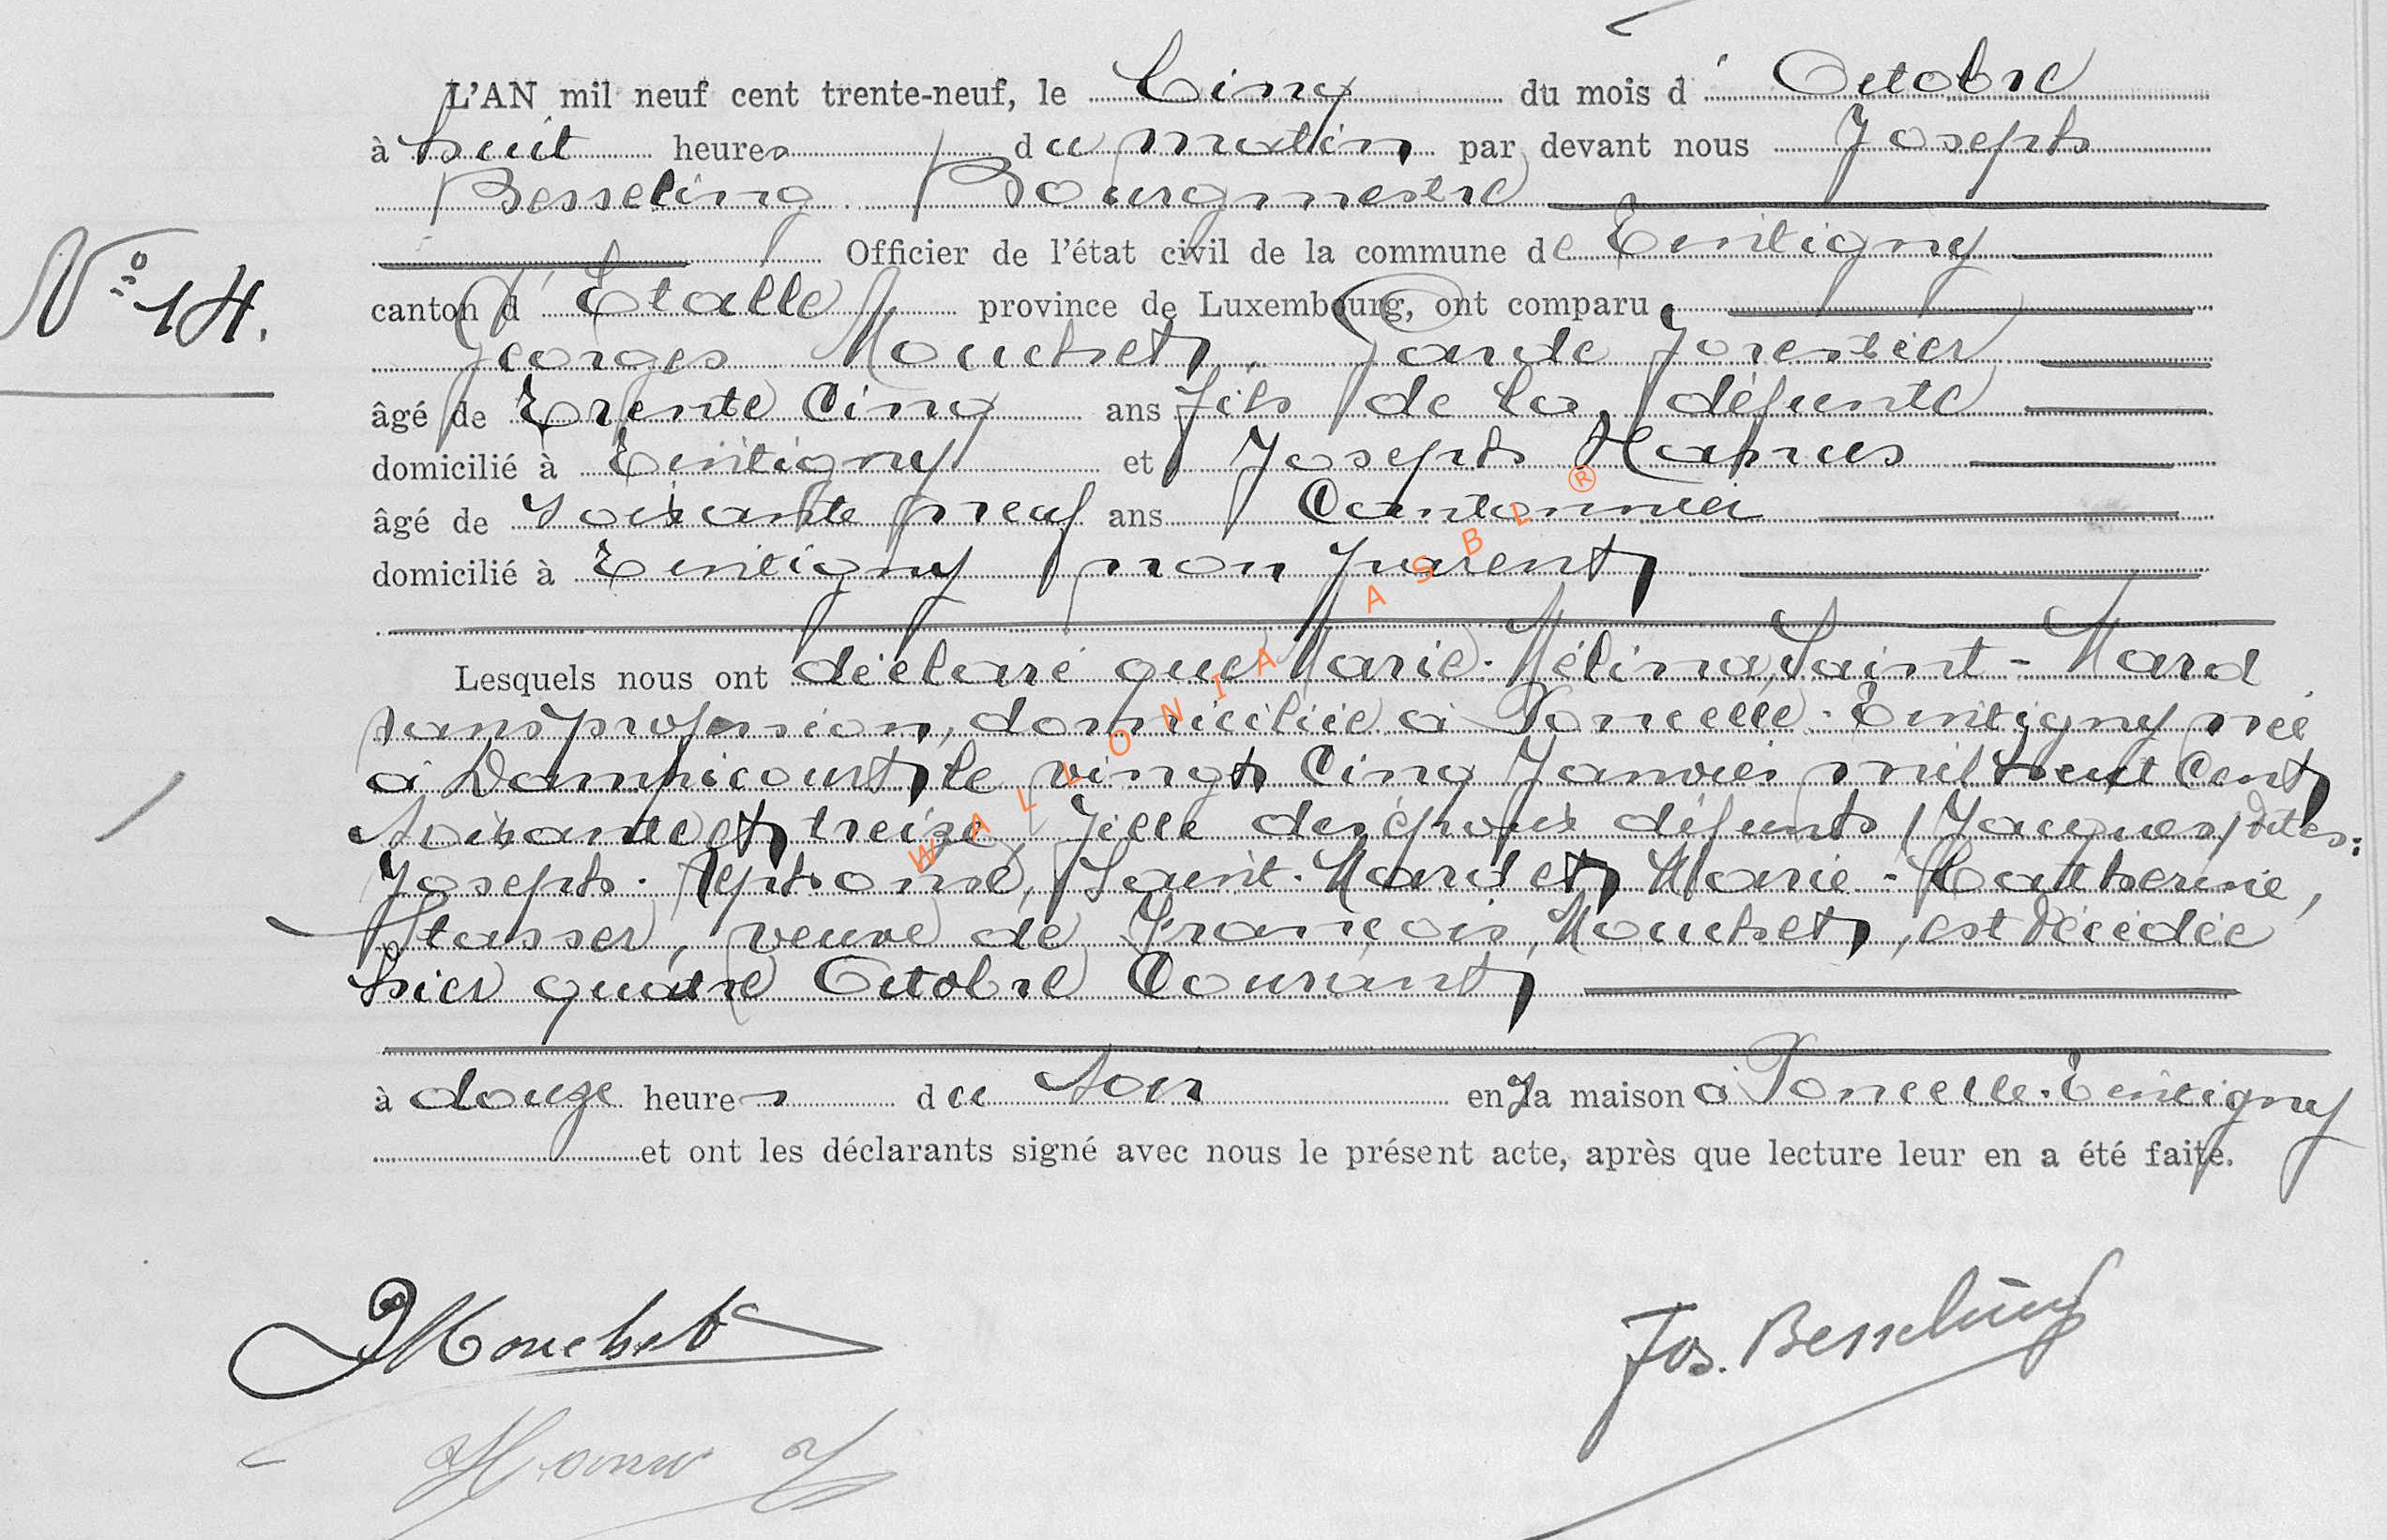 L'AN mil neuf cent trente-neuf, le Cinq du mois d'Octobre
à huit heures du matin par devant nous Joseph
Besseling Bourgmestre
Officier de l'état civil de la commune de Tintigny
N° 14.
canton d'Etalle province de Luxembourg, ont comparu
Georges Mouchet, Garde forestier
âgé de Trente Cinq ans fils de la défunte
domicilié à Tintigny et Joseph
âgé de Soixante neuf ans Cantonnier
domicilié à Tintigny non parent
Lesquels nous ont déclaré que Marie-Mélina, Saint-Mard
sans profession, domiciliée à Poncelle-Tintigny née
à Dampicourt le vingt Cinq Janvier mil huit Cent
soixante et treize fille des époux défunts (Jacques) dites:
Joseph-Alphonse, Saint-Mard et Marie-Catherine,
Stasser, veuve de François, Mouchet, est décédée
hier quatre Octobre Courant
à douze heures du soir en la maison à Poncelle-Tintigny
et ont les déclarants signé avec nous le présent acte, après que lecture leur en a été faite.
Mouchet
Jos. Besseling
J
WALLONIA ASBL ®